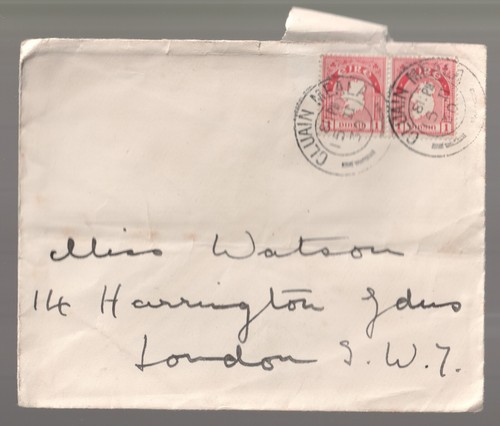 ÉIRE
1 PINGIN 1
CLUAIN MEALA
CLUAIN MEALA
Miss Watson
14 Harrington Gdns
London S.W.7.